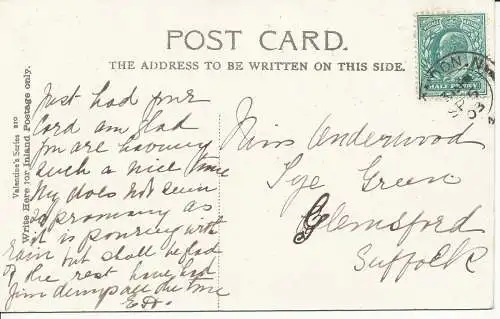 POST CARD.
THE ADDRESS TO BE WRITTEN ON THIS SIDE.
Valentine's Series
Write Here for Inland Postage only.
HALF PENNY
Just had your
Card am glad
you are having
such a nice time
My does not seem
so promising as
it is pouring with
rain but shall be glad
of the rest have had
time
Miss Underwood
Tye Green
Glemsford
Suffolk